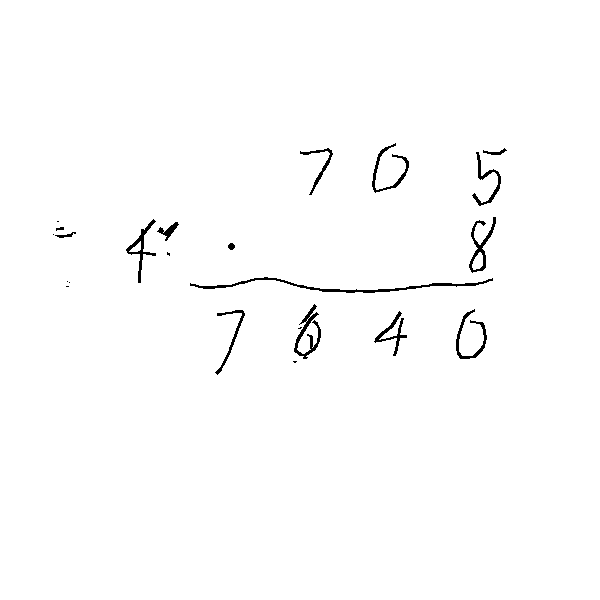 705
4 · 8
7640